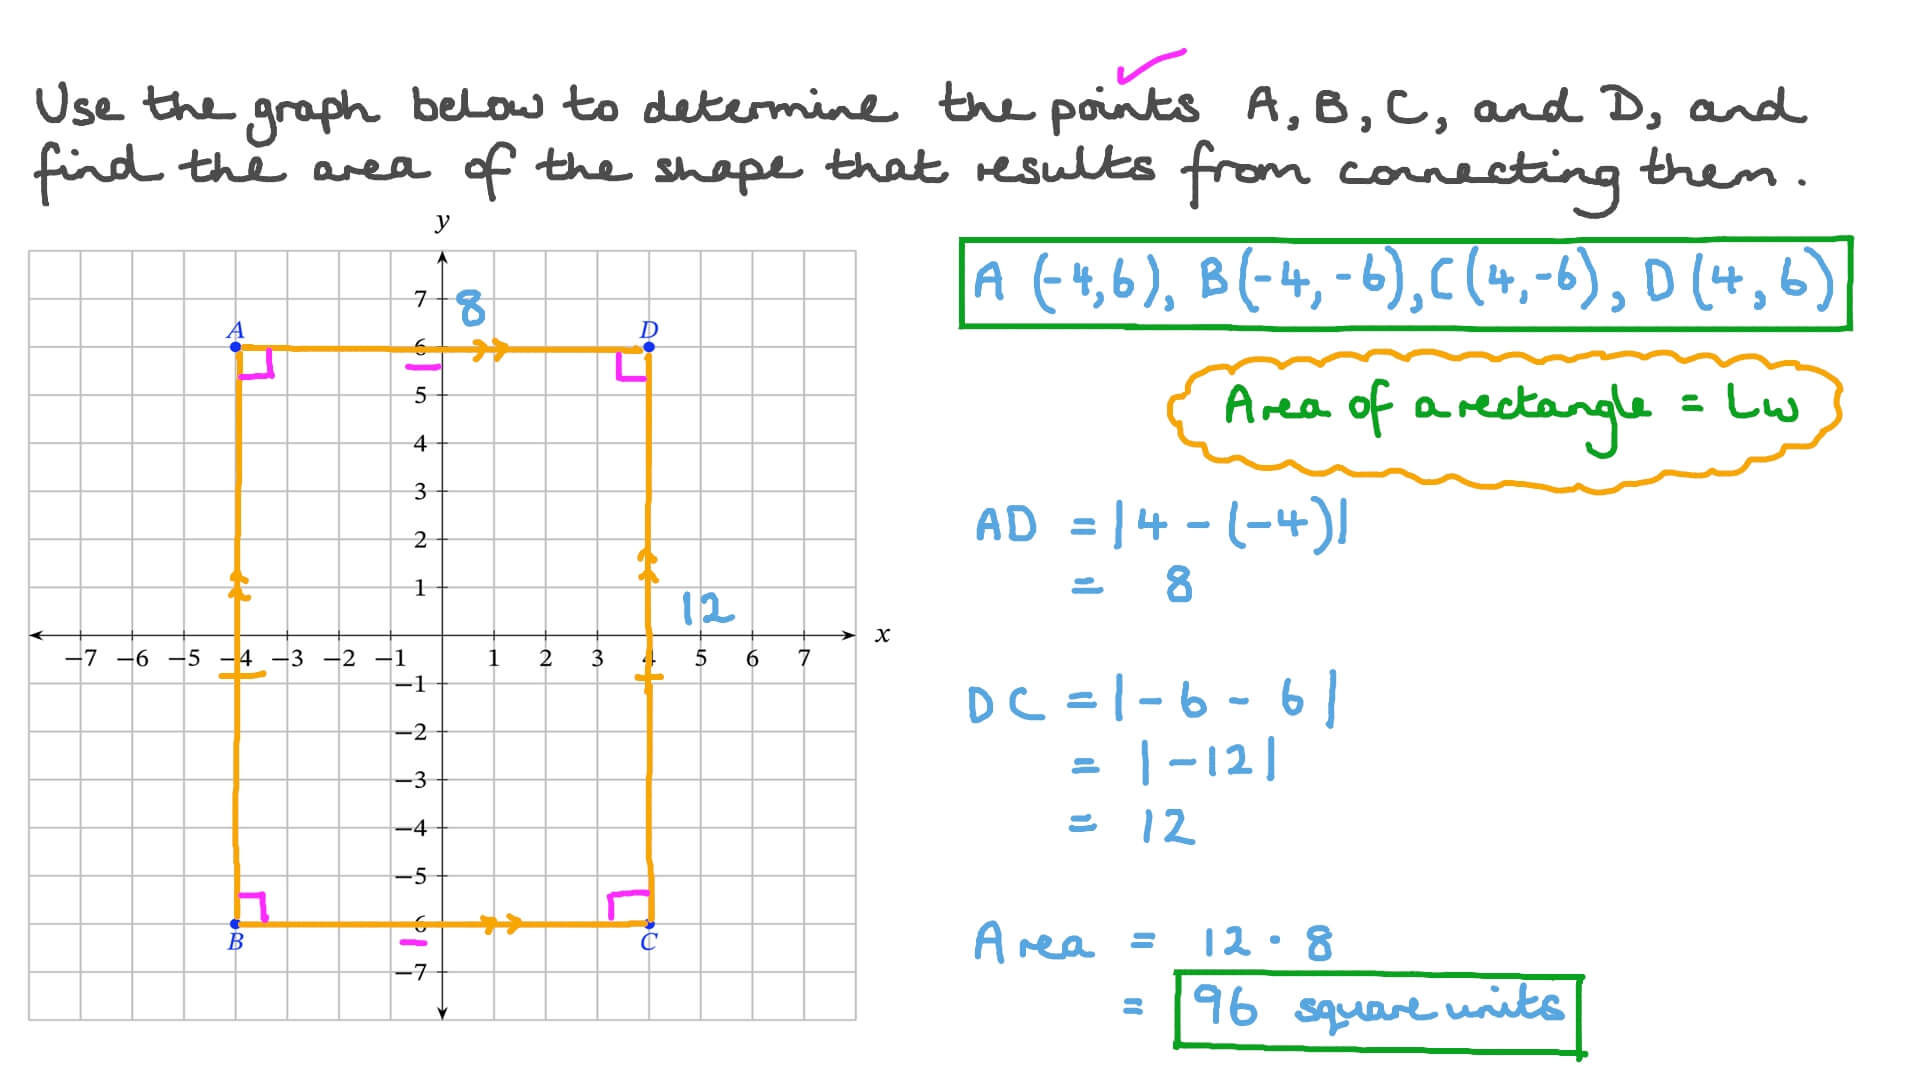 Use the graph below to determine the points A, B, C, and D, and
find the area of the shape that results from connecting them.
y
7
8
A
D
6
5
4
3
2
1
12
x
−7 −6 −5 −4 −3 −2 −1 1 2 3 4 5 6 7
−1
−2
−3
−4
−5
6
B
C
−7
A (-4,6), B(-4,-6), C(4,-6), D(4,6)
Area of a rectangle = Lw
AD = |4 - (-4)|
= 8
DC = |-6 - 6|
= |-12|
= 12
Area = 12 · 8
= 96 square units